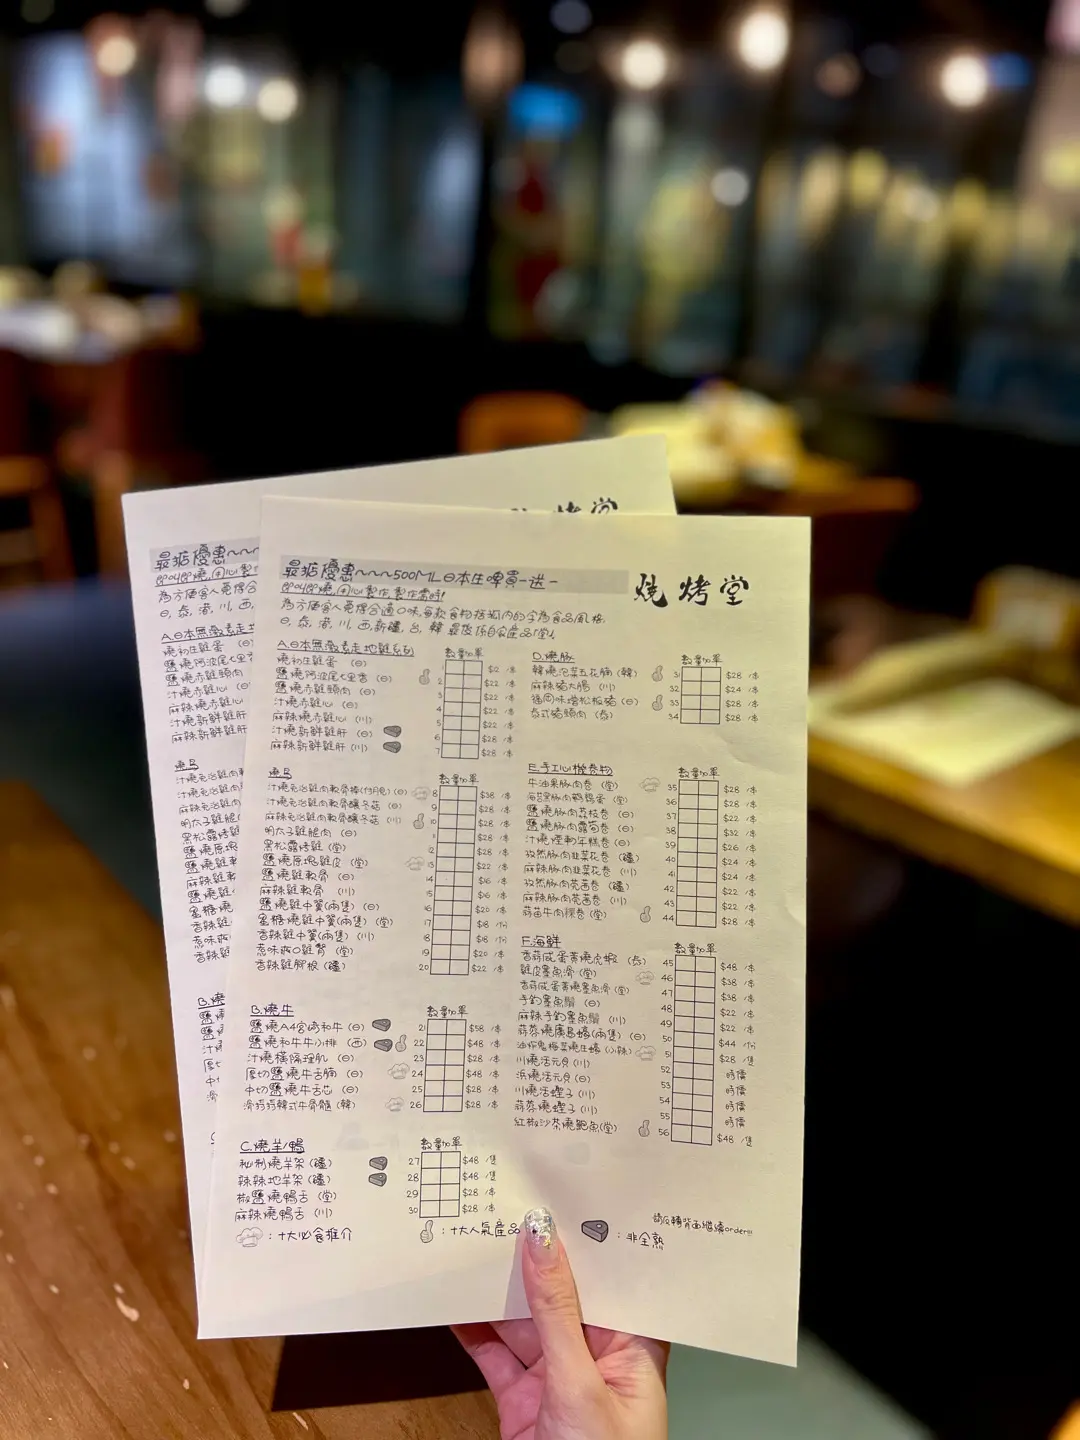 燒烤堂
最抵優惠~~~500ML日本生啤買一送一
即叫即燒,用心製作,製作需時!
為方便客人覓得合適口味,每款食物括弧內的字為食品風格.
日, 泰, 港, 川, 西, 新疆, 台, 韓 最後係自家產品「堂」.
A.日本無激素走地雞系列 數量/加單
燒初生雞蛋 (日) 1 $12 /本
鹽燒阿波尾七里香 (日) 2 $22 /本
鹽燒赤雞頸肉 (日) 3 $22 /本
汁燒赤雞心 (日) 4 $22 /本
麻辣燒赤雞心 (川) 5 $22 /本
汁燒新鮮雞肝 (日) 6 $28 /本
麻辣新鮮雞肝 (川) 7 $28 /本
燒鳥 數量/加單
汁燒免治雞肉軟骨棒(付月見) (日) 8 $38 /本
汁燒免治雞肉軟骨釀冬菇 (日) 9 $28 /本
麻辣免治雞肉軟骨釀冬菇 (川) 10 $28 /本
明太子雞腿肉 (日) 11 $28 /本
黑松露烤雞 (堂) 12 $28 /本
鹽燒原塊雞皮 (堂) 13 $22 /本
鹽燒雞軟骨 (日) 14 $16 /本
麻辣雞軟骨 (川) 15 $16 /本
鹽燒雞中翼(兩隻) (日) 16 $20 /本
蜜糖燒雞中翼(兩隻) (堂) 17 $18 /份
香辣雞中翼(兩隻) (川) 18 $18 /份
惹味雞腎 (堂) 19 $20 /本
香辣雞腳板 (疆) 20 $22 /本
B.燒牛 數量/加單
鹽燒A4宮崎和牛 (日) 21 $58 /本
鹽燒和牛牛小排 (西) 22 $48 /本
汁燒橫隔理肌 (日) 23 $28 /本
厚切鹽燒牛舌腩 (日) 24 $48 /本
中切鹽燒牛舌芯 (日) 25 $28 /本
滑捋捋韓式牛骨髓 (韓) 26 $28 /本
C.燒羊/鴨 數量/加單
秘制燒羊架 (疆) 27 $48 /隻
辣辣地羊架 (疆) 28 $48 /隻
椒鹽燒鴨舌 (堂) 29 $28 /本
麻辣燒鴨舌 (川) 30 $28 /本
D.燒豚 數量/加單
韓燒泡菜五花腩 (韓) 31 $28 /本
麻辣豬大腸 (川) 32 $24 /本
福岡味增松板豬 (日) 33 $28 /本
泰式豬頸肉 (泰) 34 $28 /本
E.手工心機卷物 數量/加單
牛油果豚肉卷 (堂) 35 $28 /本
海苔黑豚肉鵪鶉蛋 (堂) 36 $28 /本
鹽燒豚肉荔枝卷 (日) 37 $22 /本
鹽燒豚肉露荀卷 (日) 38 $32 /本
汁燒煙鴨年糕卷 (日) 39 $26 /本
孜然豚肉韮菜花卷 (疆) 40 $24 /本
麻辣豚肉韮菜花卷 (川) 41 $24 /本
孜然豚肉芫茜卷 (疆) 42 $22 /本
麻辣豚肉芫茜卷 (川) 43 $22 /本
蒜苗牛肉粿卷 (堂) 44 $28 /本
F.海鮮 數量/加單
香蒜咸蛋黃燒虎蝦 (泰) 45 $48 /本
雞皮墨魚滑 (堂) 46 $38 /本
香蒜咸蛋黃燒墨魚滑 (堂) 47 $38 /本
手釣墨魚鬚 (日) 48 $22 /本
麻辣手釣墨魚鬚 (川) 49 $22 /本
蒜蓉燒廣島蠔(兩隻) (日) 50 $44 /份
油炸鬼榨菜燒生蠔 (小辣) 51 $28 /隻
川燒活元貝 (川) 52 時價
浜燒活元貝 (日) 時價
川燒活蟶子 (川) 54 時價
蒜蓉燒蟶子 (川) 55 時價
紅椒沙茶燒鮑魚 (堂) 56 $48 /隻
: 十大必食推介
: 十大人氣產品
: 非全熟
請反轉背面繼續order!!!